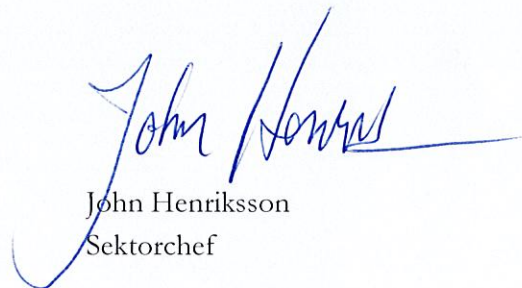 John Henriks
John Henriksson
Sektorchef